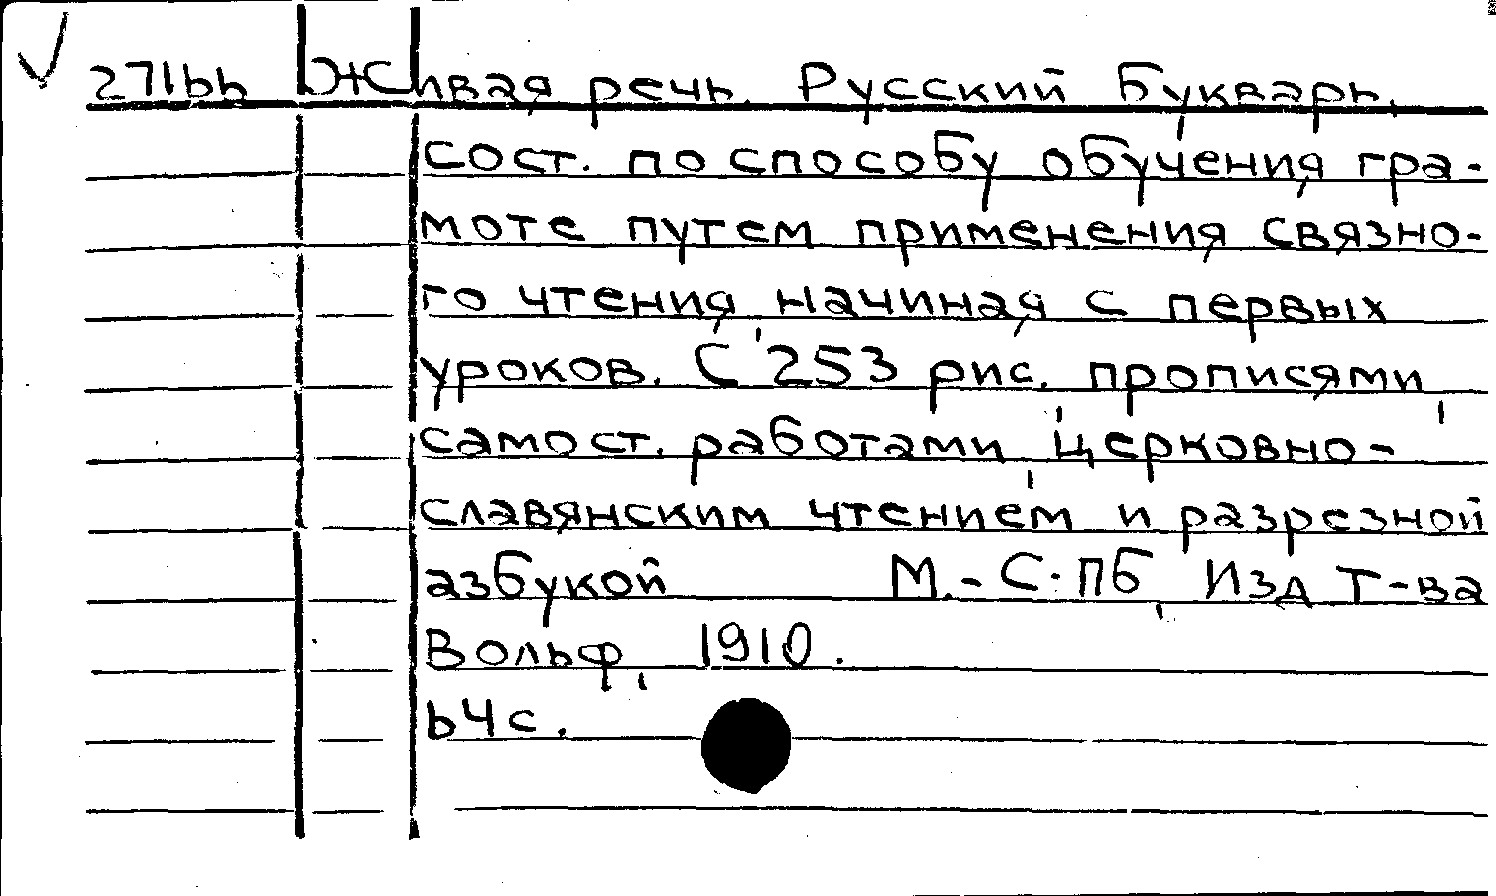 27166 Живая речь. Русский Букварь,
сост. по способу обучения гра-
моте путем применения связно-
го чтения, начиная с первых
уроков. С 253 рис., прописями,
самост. работами, церковно-
славянским чтением и разрезной
азбукой М.-С.ПБ, Изд Т-ва
Вольф, 1910.
64 с.